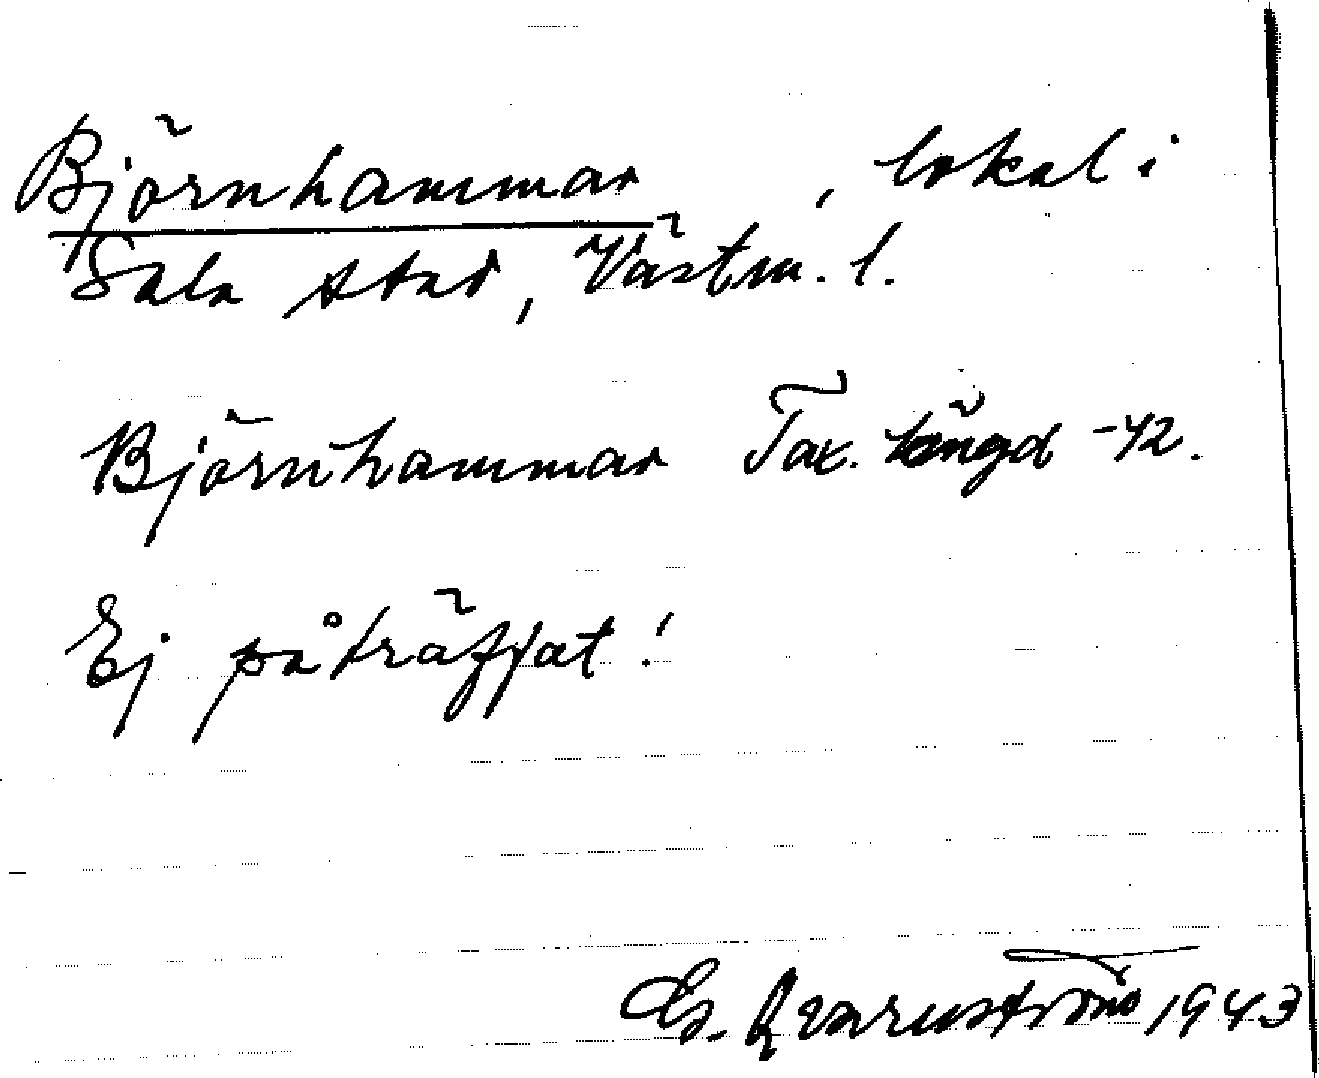 Björnhammar, lokal i
Sala stad, Västm. l.
Björnhammar Tax. längd -42.
Ej påträffat!
G. Qvarnström 1943